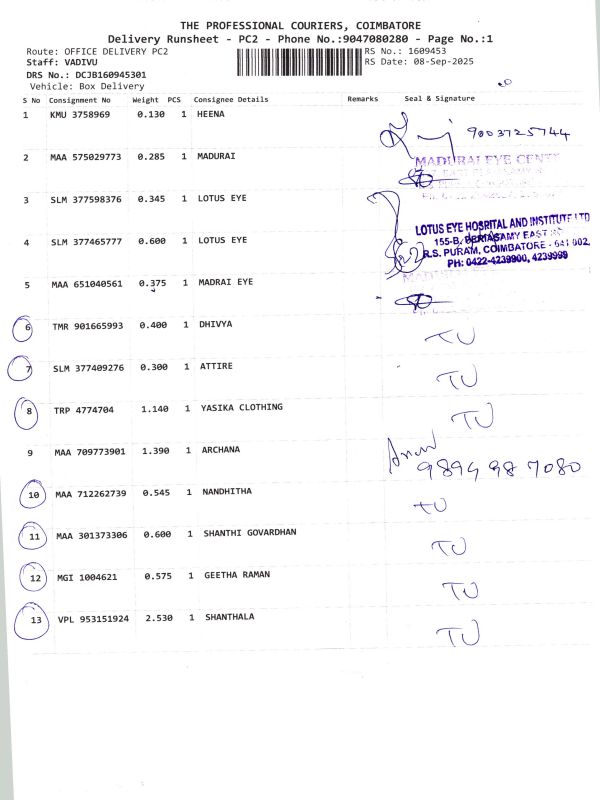 THE PROFESSIONAL COURIERS, COIMBATORE
Delivery Runsheet - PC2 - Phone No.:9047080280 - Page No.:1
Route: OFFICE DELIVERY PC2 RS No.: 1609453
Staff: VADIVU RS Date: 08-Sep-2025
DRS No.: DCJB160945301
Vehicle: Box Delivery
S No Consignment No Weight PCS Consignee Details Remarks Seal & Signature
1 KMU 3758969 0.130 1 HEENA
9003725744
2 MAA 575029773 0.285 1 MADURAI
MADURAI EYE
3 SLM 377598376 0.345 1 LOTUS EYE
LOTUS EYE HOSPITAL AND INSTITUTE LTD
4 SLM 377465777 0.600 1 LOTUS EYE
155-B, PERIASAMY EAST
R.S. PURAM, COIMBATORE - 641 002.
PH: 0422-4239900, 4239999
5 MAA 651040561 0.375 1 MADRAI EYE
6 TMR 901665993 0.400 1 DHIVYA TU
7 SLM 377409276 0.300 1 ATTIRE TU
8 TRP 4774704 1.140 1 YASIKA CLOTHING TU
9 MAA 709773901 1.390 1 ARCHANA
9894987080
10 MAA 712262739 0.545 1 NANDHITHA TU
11 MAA 301373306 0.600 1 SHANTHI GOVARDHAN TU
12 MGI 1004621 0.575 1 GEETHA RAMAN TU
13 VPL 953151924 2.530 1 SHANTHALA TU